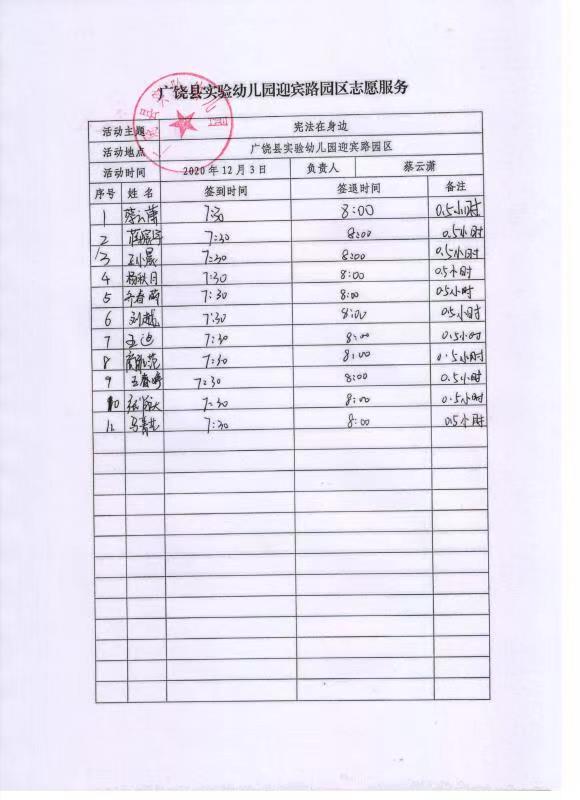 广饶县实验幼儿园迎宾路园区志愿服务
活动主题 宪法在身边
活动地点 广饶县实验幼儿园迎宾路园区
活动时间 2020年12月3日 负责人 蔡云潇
序号 姓名 签到时间 签退时间 备注
1 蔡云潇 7:30 8:00 0.5小时
2 7:30 8:00 0.5小时
3 王小晨 7:30 8:00 0.5小时
4 杨秋月 7:30 8:00 0.5小时
5 7:30 8:00 0.5小时
6 刘 7:30 8:00 0.5小时
7 王迪 7:30 8:00 0.5小时
8 7:30 8:00 0.5小时
9 王春婷 7:30 8:00 0.5小时
10 张 7:30 8:00 0.5小时
11 马 7:30 8:00 0.5小时